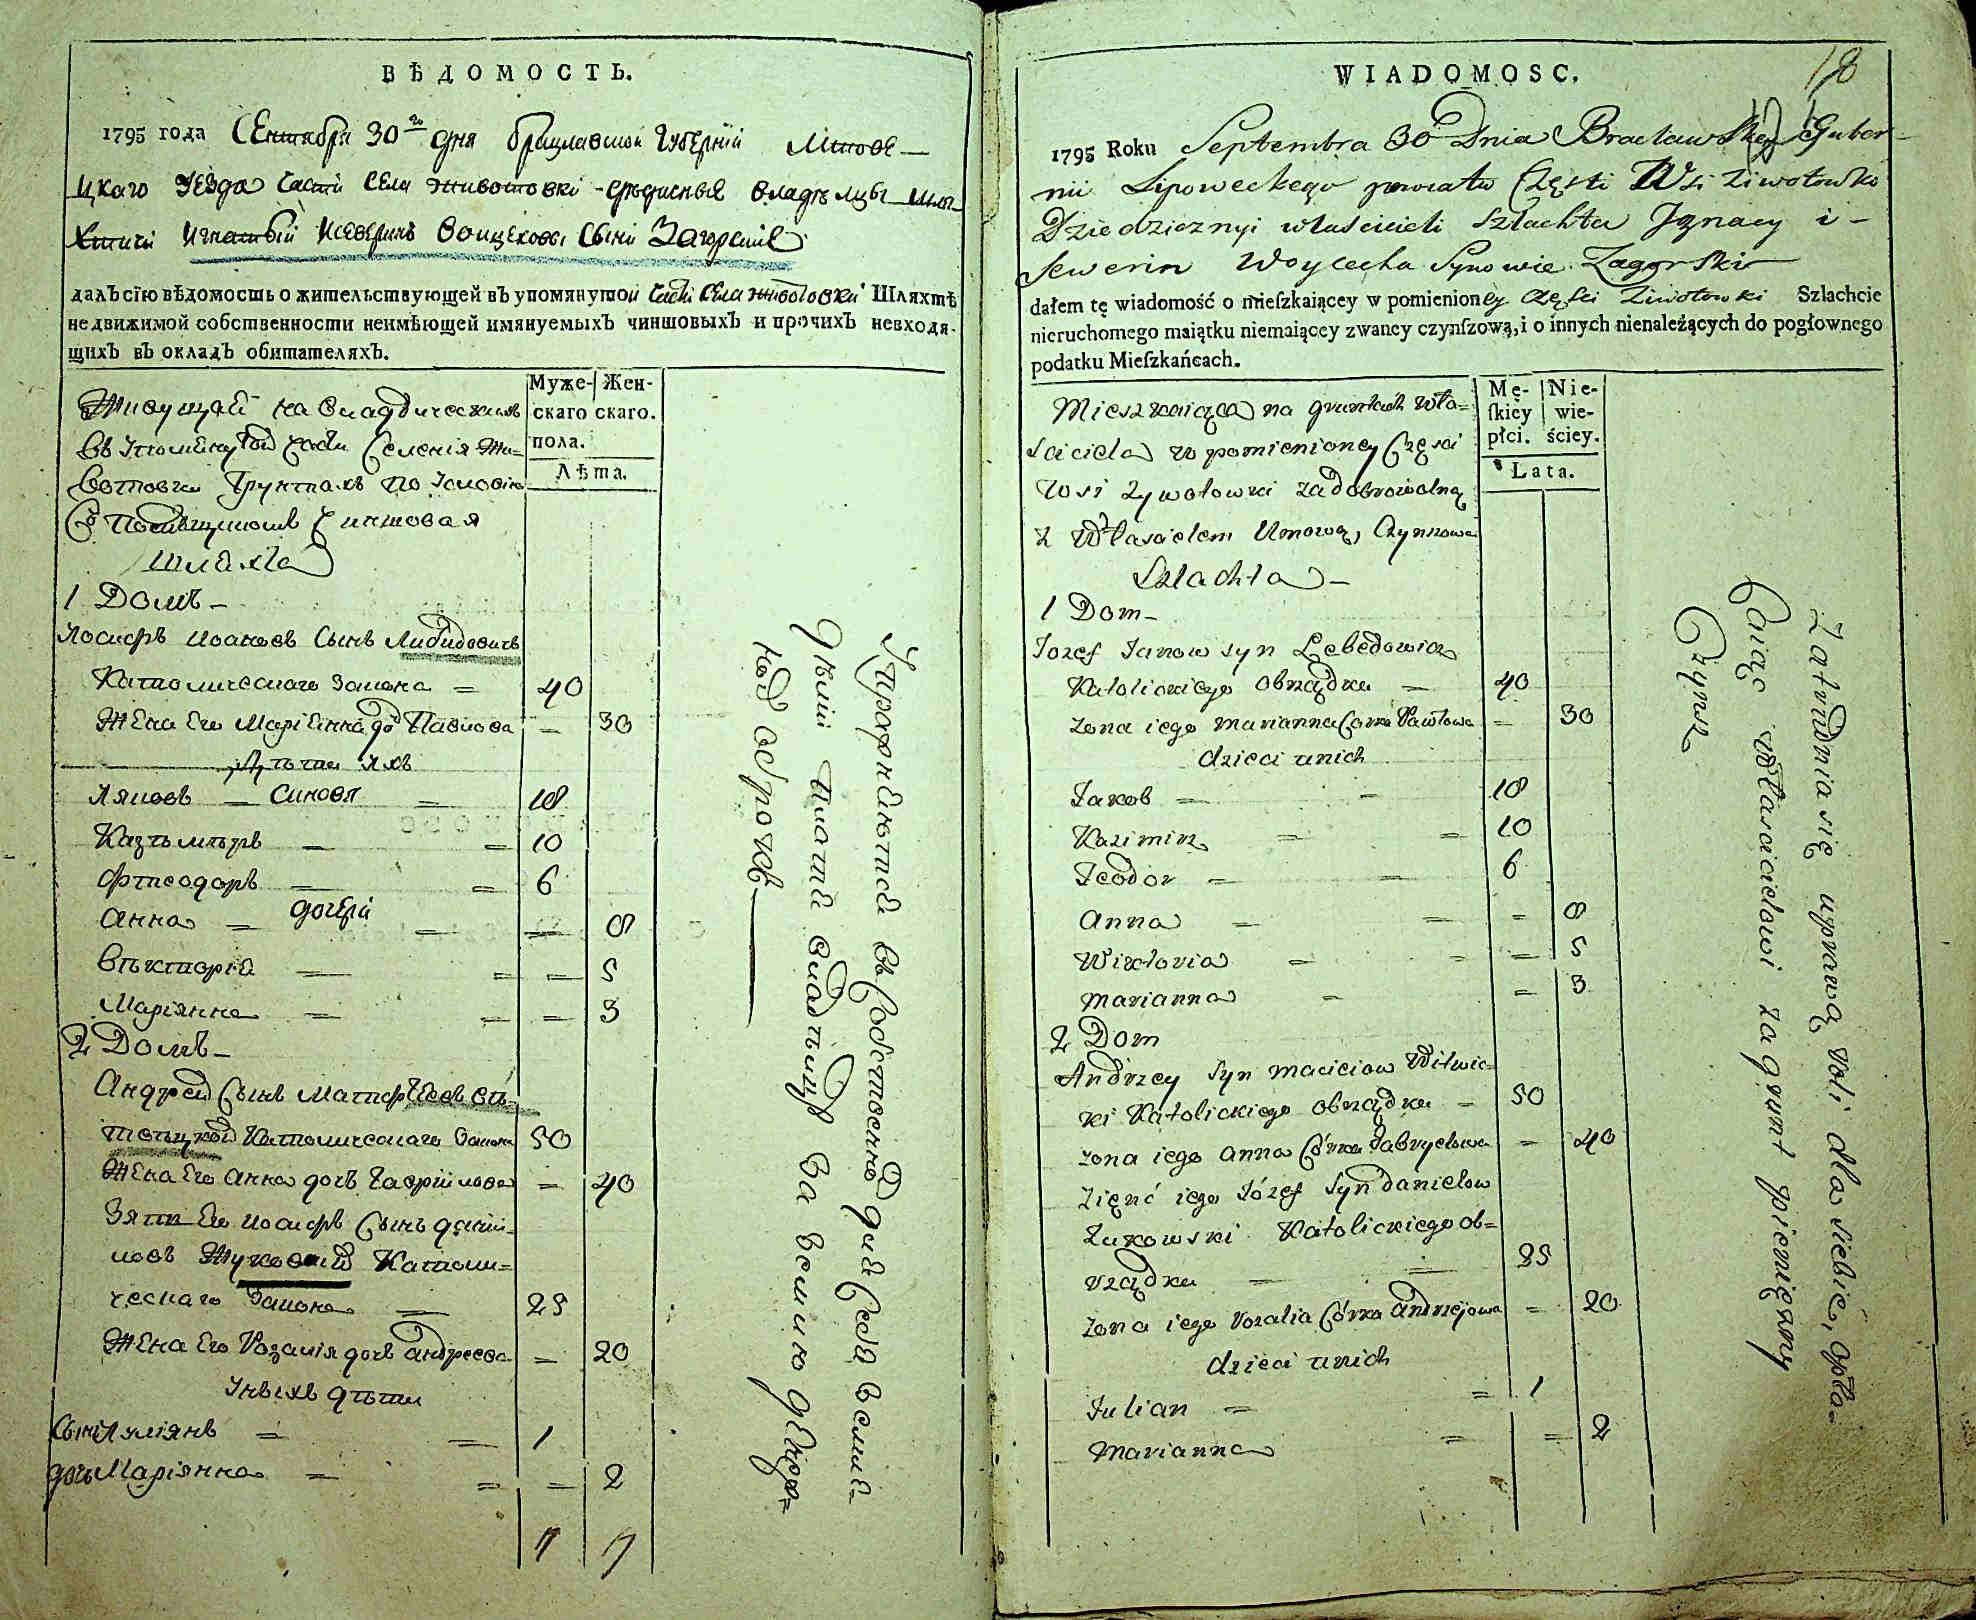 ВѢДОМОСТЬ.
1795 года Сентября 30го дня Брацлавской Губерніи Липове-
цкаго уезда части села Животовки владѣлцы шля-
хтичи Игнатьій и Северинъ Воицеховы сыни Загорскіе
далъ сію вѣдомость о жительствующей въ упомянутой части села Животовки Шляхтѣ
недвижимой собственности неимѣющей имянуемыхъ чиншовыхъ и прочихъ невходя-
щихъ въ окладъ обитателяхъ.
Муже- Жен-
скаго скаго.
пола.
Лѣта.
Живущая на владѣлческихъ
въ упомянутой части селенія Жи-
вотовки грунтахъ по условію
съ помѣщикомъ чиншовая
шляхта
1 Домъ -
Иосифъ Иоановъ сынъ Либидовичъ
Католическаго закона = 40
Жена его Маріанна до Павлова — 30
дѣти ихъ
Яковъ — синовя = 18
Казѣмѣръ — = 10
Фтеодоръ — = 6
Анна — дочери = 8
Вѣкторія — = — 5
Маріянна — = — 3
2 Домъ -
Андрей сынъ Матфѣевъ Вѣ-
твѣцкой Католическаго закона 50
Жена его Анна дочь Гавріилова — 40
Зять его Иосифъ сынъ даніи-
ловъ Жуковскій Католи-
ческаго закона — 25
Жена его Розалія дочь андреева — 20
у нихъ дѣти
сынъ Юліянъ = — 1
дочь Маріянна — = — 2
7 7
Упражняются въ собственно для себя землѣ-
дѣліи плати владѣлцу за землю денеж-
ной оброкъ —
18
WIADOMOSC.
1795 Roku Septembra 30 Dnia Bracławskey Guber-
nii Lipoweckego powiatu Części Wsi Ziwotowko
Dziedzicznyi właścicieli Szlachta Jgnacy i -
Sewerin Woycecha Synowie Zagorskie
dałem tę wiadomość o mieſzkaiącey w pomienioney części Ziwotowki Szlachcie
nieruchomego maiątku niemaiącey zwaney czynſzową, i o innych nienależących do pogłownego
podatku Mieſzkańcach.
Mę- Nie-
ſkiey wie-
płci. ściey.
Lata.
Mieszkaiąca na gruntach wła-
sciciela w pomienioney Częsci
Wsi Zywotowki za dobrowolną
z Włascicielem Umową, Czynszowa
Szlachta -
1 Dom -
Jozef Janow syn Lebedowicz
Katolickiego obrządku — 40
zona iego marianna Corka Pawłowa — 30
dzieci unich
Jakob — - 18
Kazimirz = = 10
Teodor — - 6
Anna — = - 8
Wiktoria — - — 5
marianna — = 3
2 Dom
Andrzey syn macieiow Witwic=
ki Katolickiego obrządku — 50
zona iego anna Córka Gabryelowa — 40
Zięnć iego Józef Syn danielow
Zukowski Katolickiego ob=
rządku — = 25
zona iego Rozalia Córka Andrzejowa — 20
dzieci unich
Julian — = 1
marianna = = 2
Zatrudnia się uprawą roli dla siebie, opła-
caiąc Włascicielowi za grunt pieniężny
Czynsz